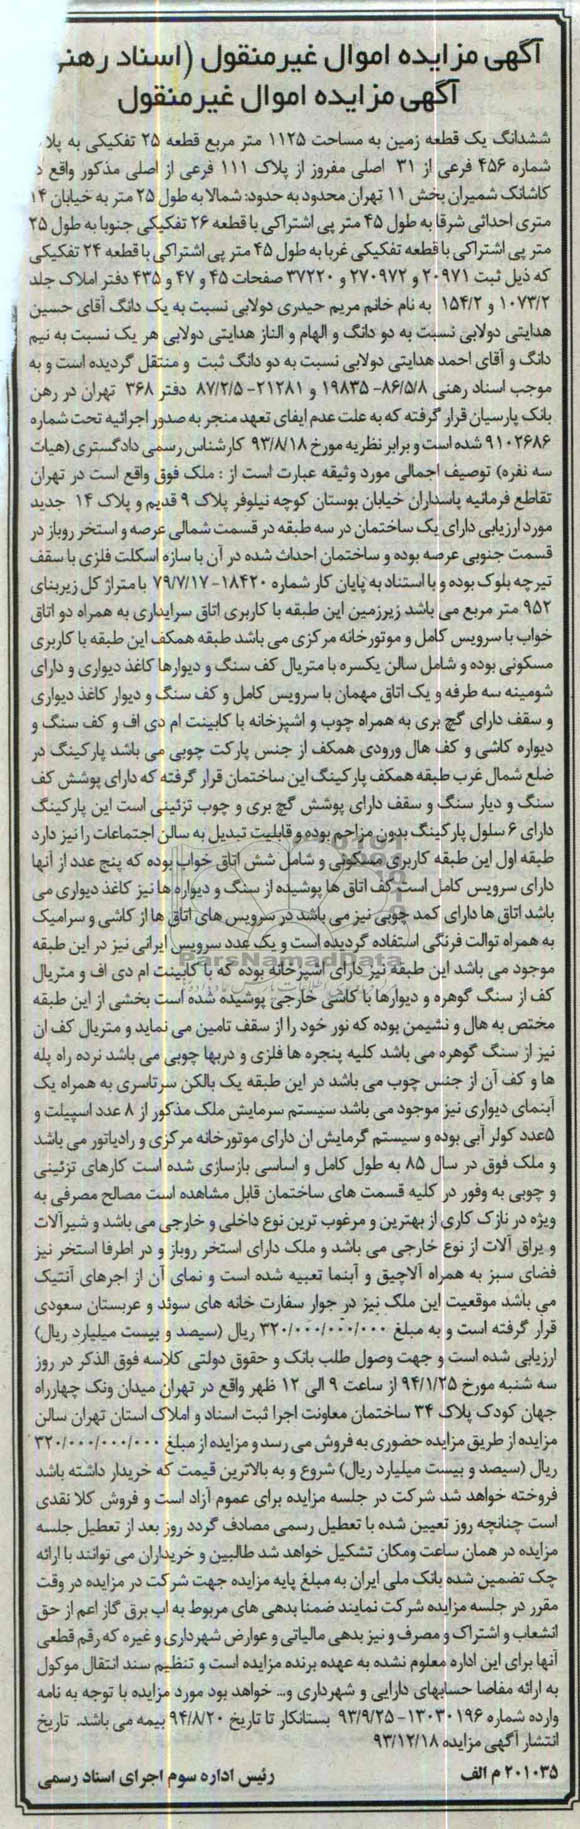 آگهی مزایده اموال غیرمنقول (اسناد رهنی
آگهی مزایده اموال غیرمنقول
ششدانگ یک قطعه زمین به مساحت ۱۱۲۵ متر مربع قطعه ۲۵ تفکیکی به
شماره ۴۵۶ فرعی از ۳۱ اصلی مفروز از پلاک ۱۱۱ فرعی از اصلی مذکور واقع
کاشانک شمیران بخش ۱۱ تهران محدود به حدود: شمالا به طول ۲۵ متر به خیابان ۱۴
متری احداثی شرقا به طول ۴۵ متر پی اشتراکی با قطعه ۲۶ تفکیکی جنوبا به طول ۲۵
متر پی اشتراکی با قطعه تفکیکی غربا به طول ۴۵ متر پی اشتراکی با قطعه ۲۴ تفکیکی
که ذیل ثبت ۲۰۹۷۱ و ۲۷۰۹۷۲ و ۳۷۲۲۰ صفحات ۴۵ و ۴۷ و ۴۳۵ دفتر املاک جلد
۱۰۷۳/۲ و ۱۵۴/۲ به نام خانم مریم حیدری دولابی نسبت به یک دانگ آقای حسین
هدایتی دولابی نسبت به دو دانگ و الهام و الناز هدایتی دولابی هر یک نسبت به نیم
دانگ و آقای احمد هدایتی دولابی نسبت به دو دانگ ثبت و منتقل گردیده است و به
موجب اسناد رهنی ۸۶/۵/۸- ۱۹۸۳۵ و ۲۱۲۸۱- ۸۷/۲/۵ دفتر ۳۶۸ تهران در رهن
بانک پارسیان قرار گرفته که به علت عدم ایفای تعهد منجر به صدور اجرائیه تحت شماره
۹۱۰۲۶۸۶ شده است و برابر نظریه مورخ ۹۳/۸/۱۸ کارشناس رسمی دادگستری (هیات
سه نفره) توصیف اجمالی مورد وثیقه عبارت است از : ملک فوق واقع است در تهران
تقاطع فرمانیه پاسداران خیابان بوستان کوچه نیلوفر پلاک ۹ قدیم و پلاک ۱۴ جدید
مورد ارزیابی دارای یک ساختمان در سه طبقه در قسمت شمالی عرصه و استخر روباز در
قسمت جنوبی عرصه بوده و ساختمان احداث شده در آن با سازه اسکلت فلزی با سقف
تیرچه بلوک بوده و با استناد به پایان کار شماره ۱۸۴۲۰- ۷۹/۷/۱۷ با متراژ کل زیربنای
۹۵۲ متر مربع می باشد زیرزمین این طبقه با کاربری اتاق سرایداری به همراه دو اتاق
خواب با سرویس کامل و موتورخانه مرکزی می باشد طبقه همکف این طبقه با کاربری
مسکونی بوده و شامل سالن یکسره با متریال کف سنگ و دیوارها کاغذ دیواری و دارای
شومینه سه طرفه و یک اتاق مهمان با سرویس کامل و کف سنگ و دیوار کاغذ دیواری
و سقف دارای گچ بری به همراه چوب و اشپزخانه با کابینت ام دی اف و کف سنگ و
دیواره کاشی و کف هال ورودی همکف از جنس پارکت چوبی می باشد پارکینگ در
ضلع شمال غرب طبقه همکف پارکینگ این ساختمان قرار گرفته که دارای پوشش کف
سنگ و دیار سنگ و سقف دارای پوشش گچ بری و چوب تزئینی است این پارکینگ
دارای ۶ سلول پارکینگ بدون مزاحم بوده و قابلیت تبدیل به سالن اجتماعات را نیز دارد
طبقه اول این طبقه کاربری مسکونی و شامل شش اتاق خواب بوده که پنج عدد از آنها
دارای سرویس کامل است کف اتاق ها پوشیده از سنگ و دیواره ها نیز کاغذ دیواری می
باشد اتاق ها دارای کمد چوبی نیز می باشد در سرویس های اتاق ها از کاشی و سرامیک
به همراه توالت فرنگی استفاده گردیده است و یک عدد سرویس ایرانی نیز در این طبقه
موجود می باشد این طبقه نیز دارای اشپزخانه بوده که با کابینت ام دی اف و متریال
کف از سنگ گوهره و دیوارها با کاشی خارجی پوشیده شده است بخشی از این طبقه
مختص به هال و نشیمن بوده که نور خود را از سقف تامین می نماید و متریال کف ان
نیز از سنگ گوهره می باشد کلیه پنجره ها فلزی و دربها چوبی می باشد نرده راه پله
ها و کف آن از جنس چوب می باشد در این طبقه یک بالکن سرتاسری به همراه یک
آبنمای دیواری نیز موجود می باشد سیستم سرمایش ملک مذکور از ۸ عدد اسپیلت و
۵عدد کولر آبی بوده و سیستم گرمایش ان دارای موتورخانه مرکزی و رادیاتور می باشد
و ملک فوق در سال ۸۵ به طول کامل و اساسی بازسازی شده است کارهای تزئینی
و چوبی به وفور در کلیه قسمت های ساختمان قابل مشاهده است مصالح مصرفی به
ویژه در نازک کاری از بهترین و مرغوب ترین نوع داخلی و خارجی می باشد و شیرآلات
و یراق آلات از نوع خارجی می باشد و ملک دارای استخر روباز و در اطرفا استخر نیز
فضای سبز به همراه آلاچیق و آبنما تعبیه شده است و نمای آن از اجرهای آنتیک
می باشد موقعیت این ملک نیز در جوار سفارت خانه های سوئد و عربستان سعودی
قرار گرفته است و به مبلغ ۳۲۰/۰۰۰/۰۰۰/۰۰۰ ریال (سیصد و بیست میلیارد ریال)
ارزیابی شده است و جهت وصول طلب بانک و حقوق دولتی کلاسه فوق الذکر در روز
سه شنبه مورخ ۹۴/۱/۲۵ از ساعت ۹ الی ۱۲ ظهر واقع در تهران میدان ونک چهارراه
جهان کودک پلاک ۳۴ ساختمان معاونت اجرا ثبت اسناد و املاک استان تهران سالن
مزایده از طریق مزایده حضوری به فروش می رسد و مزایده از مبلغ ۳۲۰/۰۰۰/۰۰۰/۰۰۰
ریال (سیصد و بیست میلیارد ریال) شروع و به بالاترین قیمت که خریدار داشته باشد
فروخته خواهد شد شرکت در جلسه مزایده برای عموم آزاد است و فروش کلا نقدی
است چنانچه روز تعیین شده با تعطیل رسمی مصادف گردد روز بعد از تعطیل جلسه
مزایده در همان ساعت ومکان تشکیل خواهد شد طالبین و خریداران می توانند با ارائه
چک تضمین شده بانک ملی ایران به مبلغ پایه مزایده جهت شرکت در مزایده در وقت
مقرر در جلسه مزایده شرکت نمایند ضمنا بدهی های مربوط به اب برق گاز اعم از حق
انشعاب و اشتراک و مصرف و نیز بدهی مالیاتی و عوارض شهرداری و غیره که رقم قطعی
آنها برای این اداره معلوم نشده به عهده برنده مزایده است و تنظیم سند انتقال موکول
به ارائه مفاصا حسابهای دارایی و شهرداری و... خواهد بود مورد مزایده با توجه به نامه
وارده شماره ۱۳۰۳۰۱۹۶- ۹۳/۹/۲۵ بستانکار تا تاریخ ۹۴/۸/۲۰ بیمه می باشد. تاریخ
انتشار آگهی مزایده ۹۳/۱۲/۱۸
۲۰۱۰۳۵ م الف رئیس اداره سوم اجرای اسناد رسمی
ParsNamadData